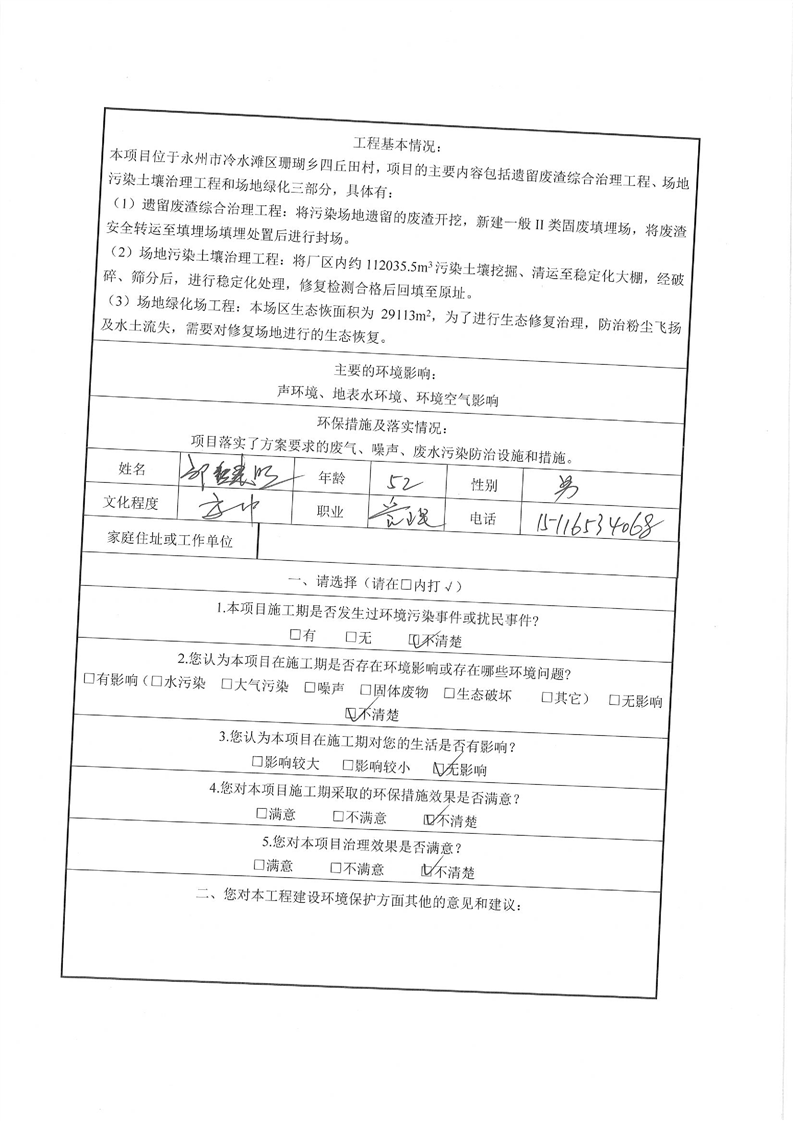 工程基本情况：
本项目位于永州市冷水滩区珊瑚乡四丘田村，项目的主要内容包括遗留废渣综合治理工程、场地
污染土壤治理工程和场地绿化三部分，具体有：
（1）遗留废渣综合治理工程：将污染场地遗留的废渣开挖，新建一般 II 类固废填埋场，将废渣
安全转运至填埋场填埋处置后进行封场。
（2）场地污染土壤治理工程：将厂区内约 112035.5m³污染土壤挖掘、清运至稳定化大棚，经破
碎、筛分后，进行稳定化处理，修复检测合格后回填至原址。
（3）场地绿化场工程：本场区生态恢面积为 29113m²，为了进行生态修复治理，防治粉尘飞扬
及水土流失，需要对修复场地进行的生态恢复。
主要的环境影响：
声环境、地表水环境、环境空气影响
环保措施及落实情况：
项目落实了方案要求的废气、噪声、废水污染防治设施和措施。
姓名 年龄 52 性别 男
文化程度 高中 职业 电话 15116534068
家庭住址或工作单位
一、请选择（请在□内打√）
1.本项目施工期是否发生过环境污染事件或扰民事件？
□有 □无 ☑不清楚
2.您认为本项目在施工期是否存在环境影响或存在哪些环境问题？
□有影响（□水污染 □大气污染 □噪声 □固体废物 □生态破坏 □其它） □无影响
☑不清楚
3.您认为本项目在施工期对您的生活是否有影响？
□影响较大 □影响较小 ☑无影响
4.您对本项目施工期采取的环保措施效果是否满意？
□满意 □不满意 ☑不清楚
5.您对本项目治理效果是否满意？
□满意 □不满意 ☑不清楚
二、您对本工程建设环境保护方面其他的意见和建议：